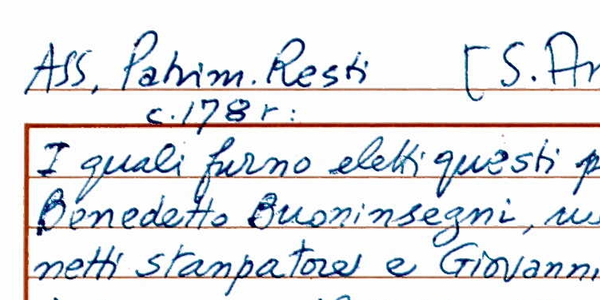 ASS, Patrim. Resti [S. An
c. 178 r:
I quali furno eletti questi p
Benedetto Buoninsegni,
netti stanpatore e Giovanni